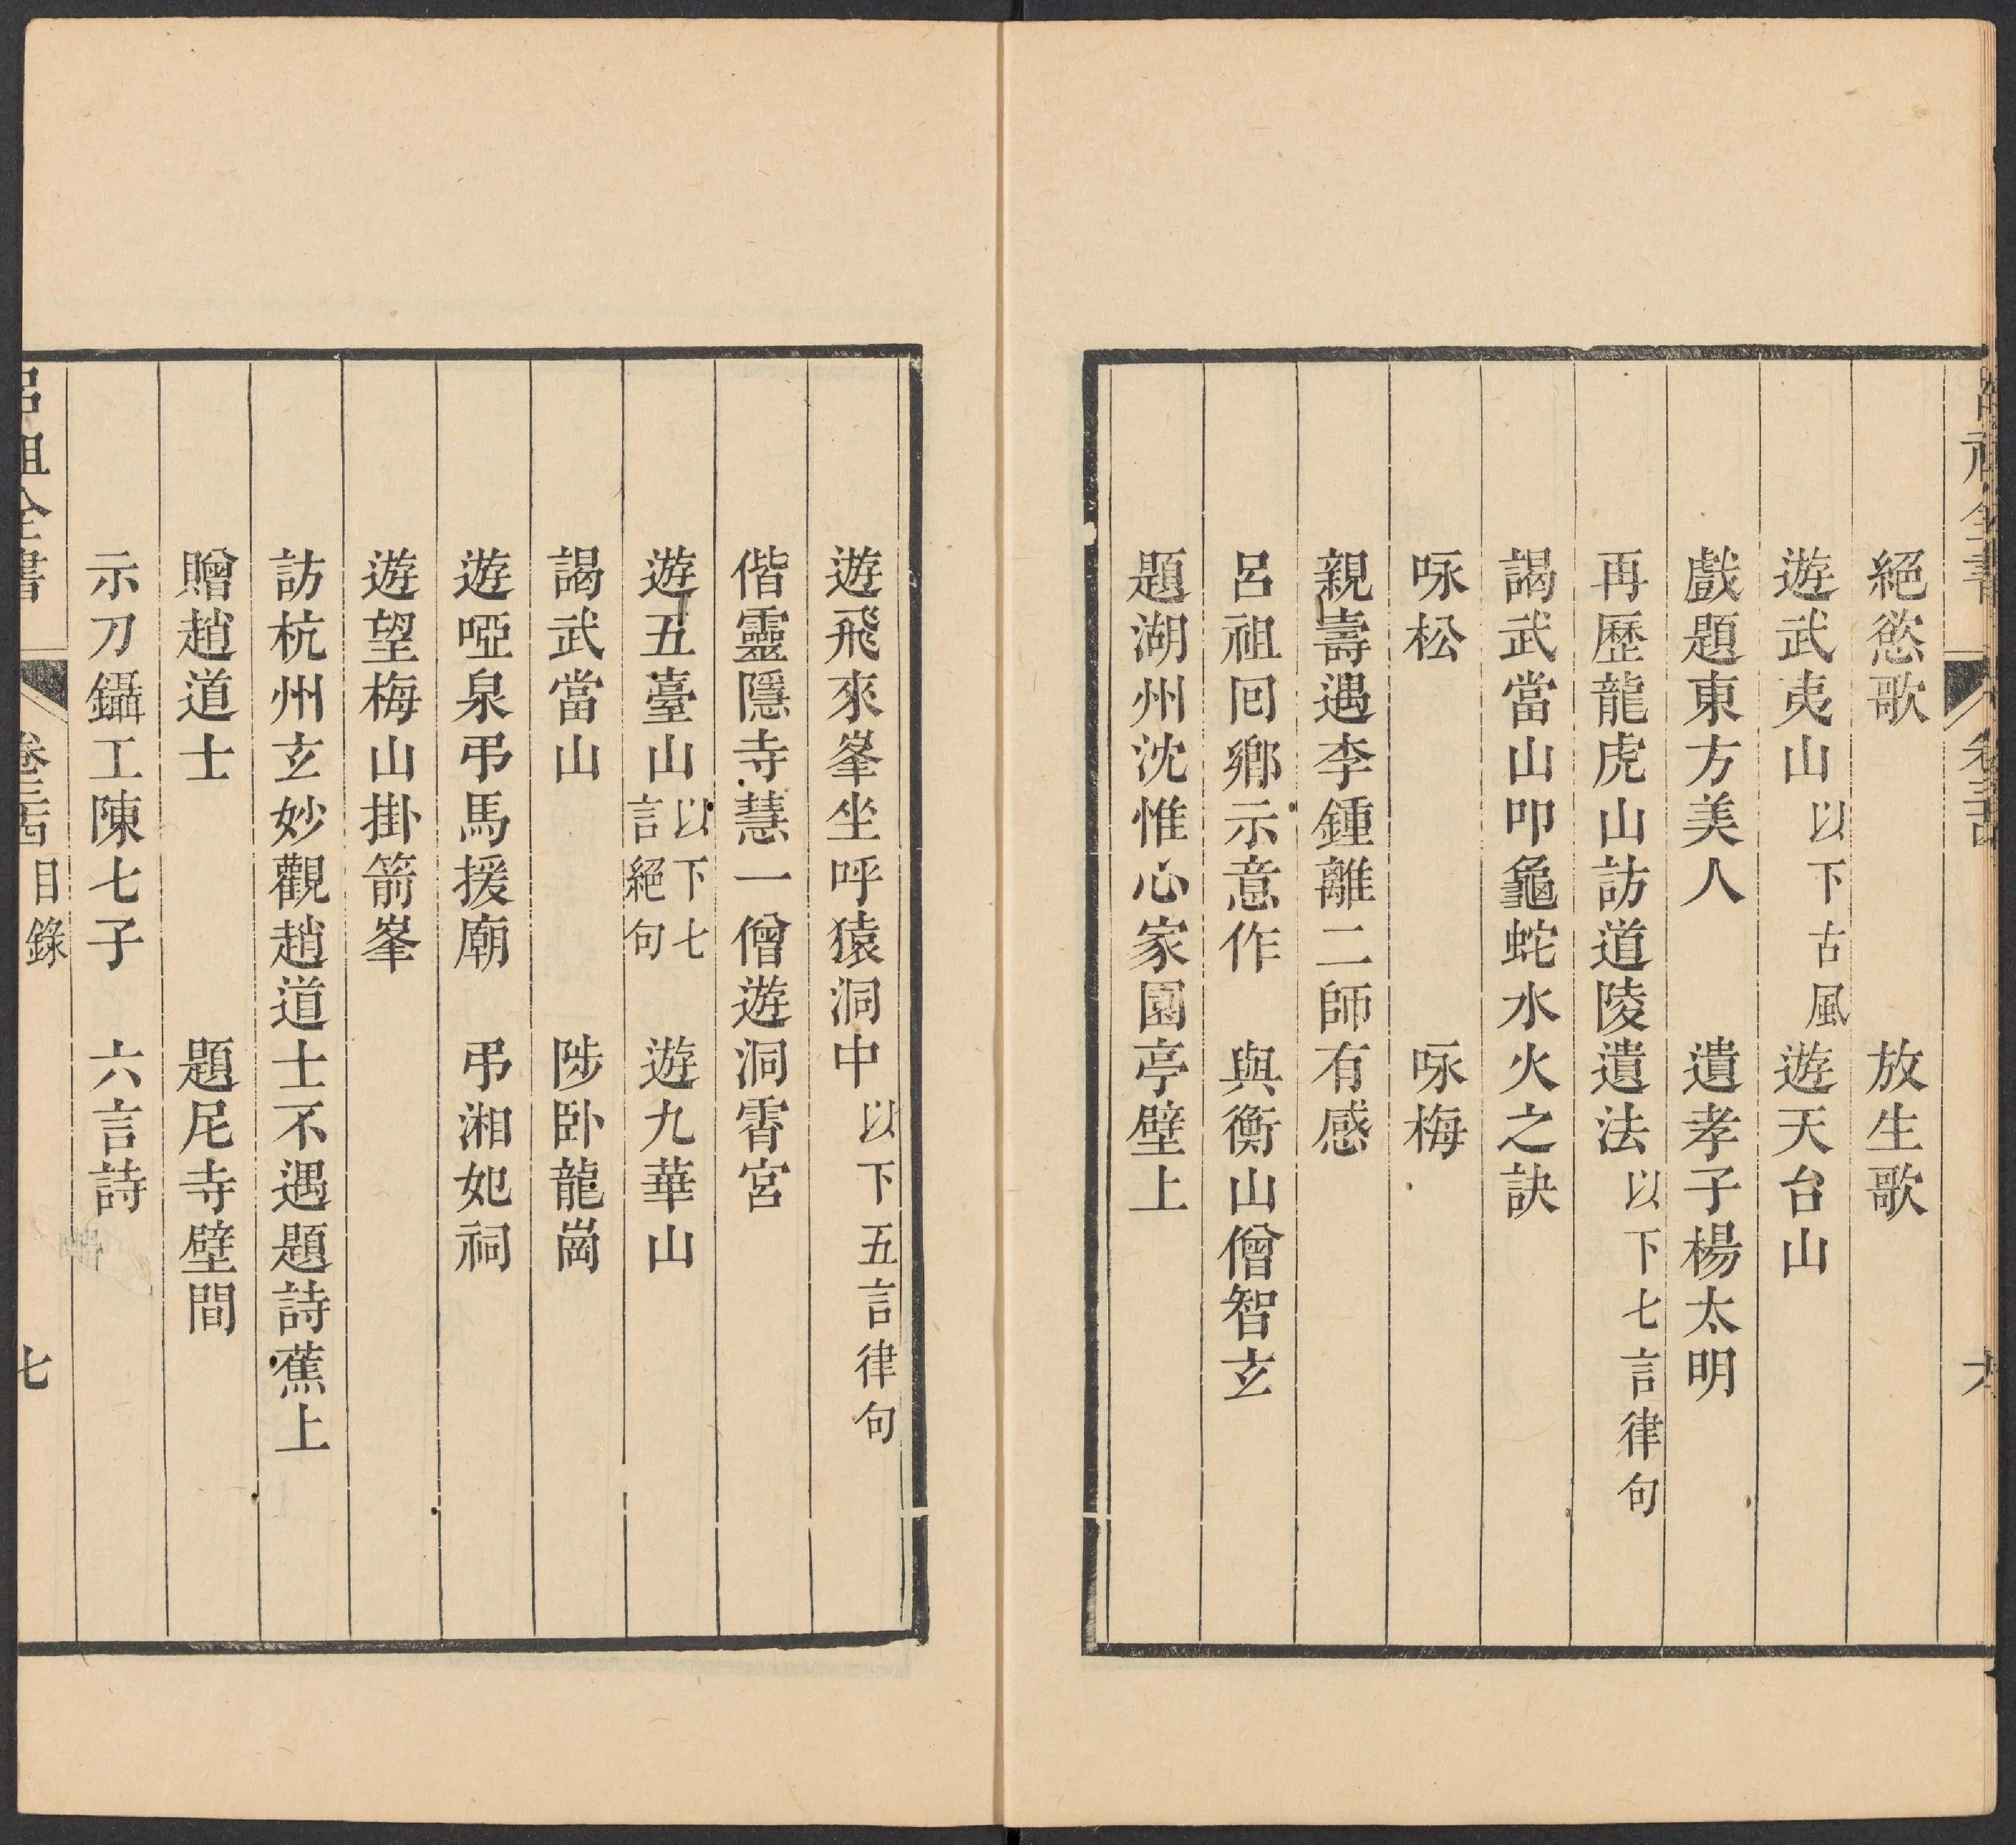 絕慾歌 放生歌
遊武夷山 以下古風 遊天台山
戲題東方美人 遺孝子楊太明
再歷龍虎山訪道陵遺法 以下七言律句
謁武當山叩龜蛇水火之訣
咏松 咏梅
親壽遇李鍾離二師有感
呂祖回鄉示意作 與衡山僧智玄
題湖州沈惟心家園亭壁上
遊飛來峯坐呼猿洞中 以下五言律句
偕靈隱寺慧一僧遊洞霄宮
遊五臺山 以下七言絕句 遊九華山
謁武當山 陟卧龍崗
遊啞泉弔馬援廟 弔湘妃祠
遊望梅山掛箭峯
訪杭州玄妙觀趙道士不遇題詩蕉上
贈趙道士 題尼寺壁間
示刀鑷工陳七子 六言詩
呂祖全書 卷三 目錄 七